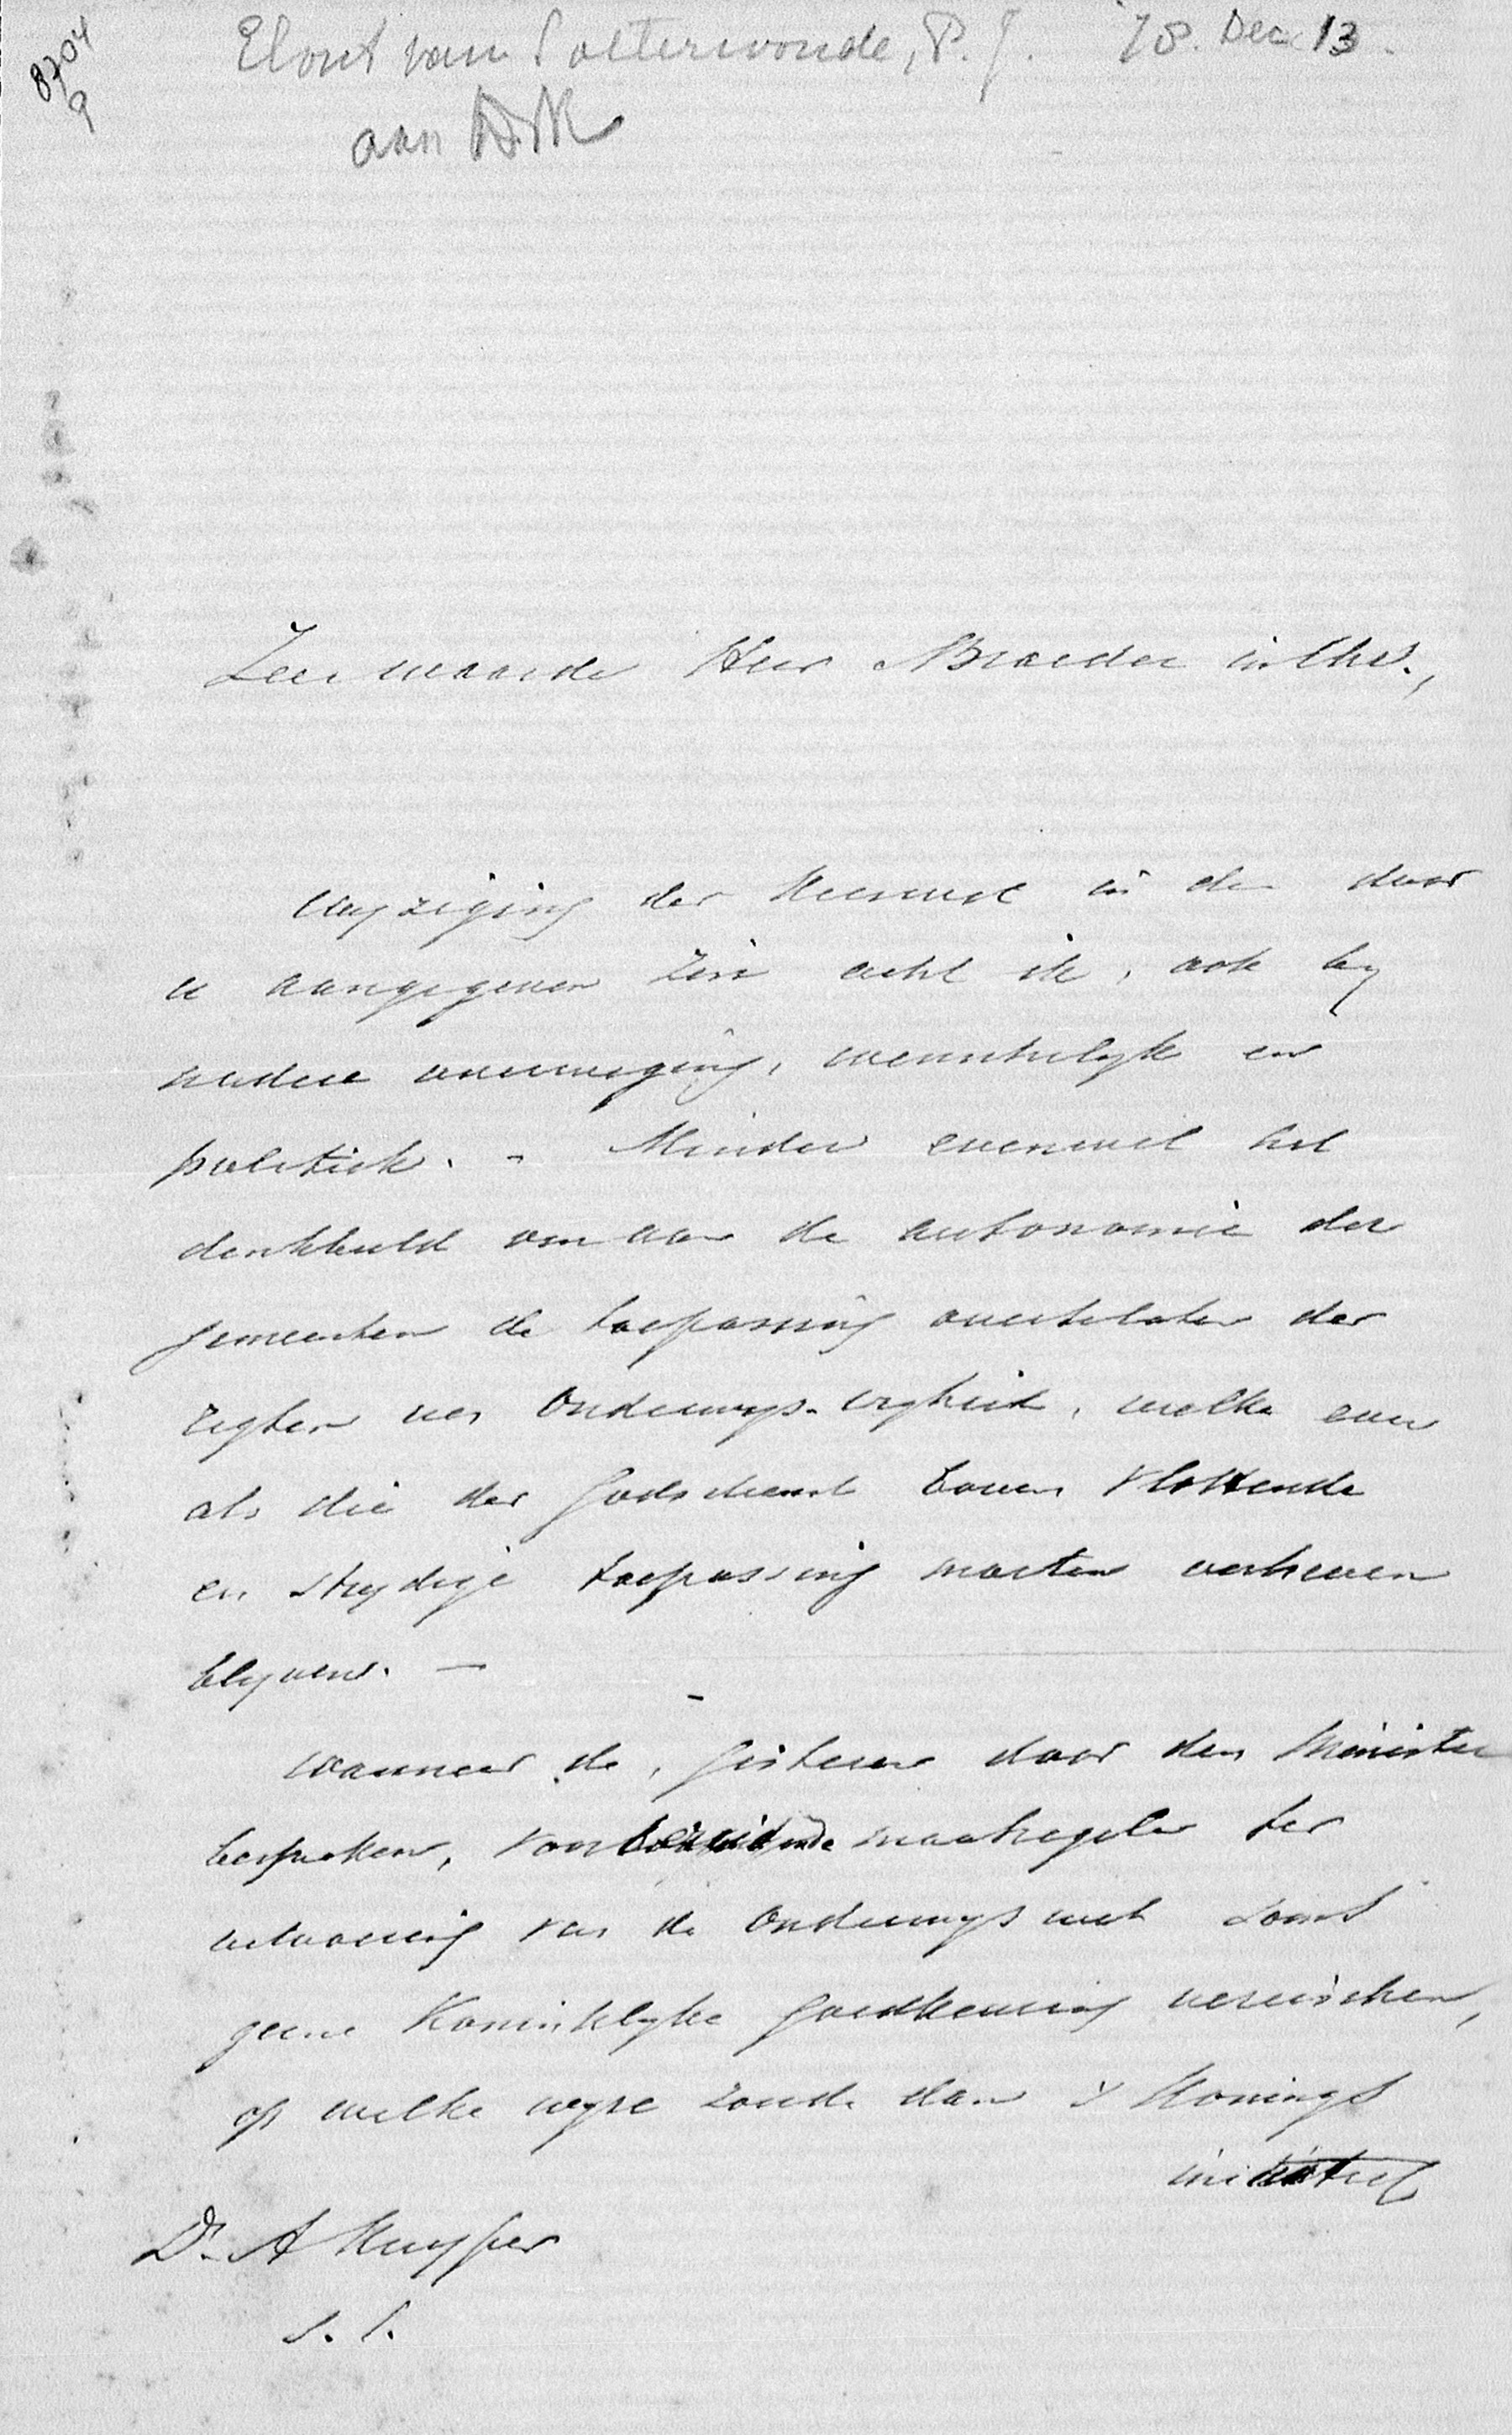 8704
9
Elout van Soeterwoude, P. J. '78. Dec 13.
aan AK
Zeer waarde Heer & Broeder in Chr.,
Wyziging der Kieswet in den door
u aangegeven zin acht ik, ook by
nadere overweging, wenschelyk en
politiek. - Minder evenwel het
denkbeeld om aan de autonomie der
gemeenten de toepassing overtelaten der
regten der Onderwys-vryheid, welke even
als die der Godsdienst boven vlottende
en strydige toepassing moeten verheven
blyven. -
Wanneer de, gisteren door den Minister
besproken, voorbereidende maatregelen ter
uitvoering van de Onderwyswet soms
geene Koninklyke goedkeuring vereischen,
op welke wyze zoude dan 's Konings
initiatief
Dr. A Kuyper